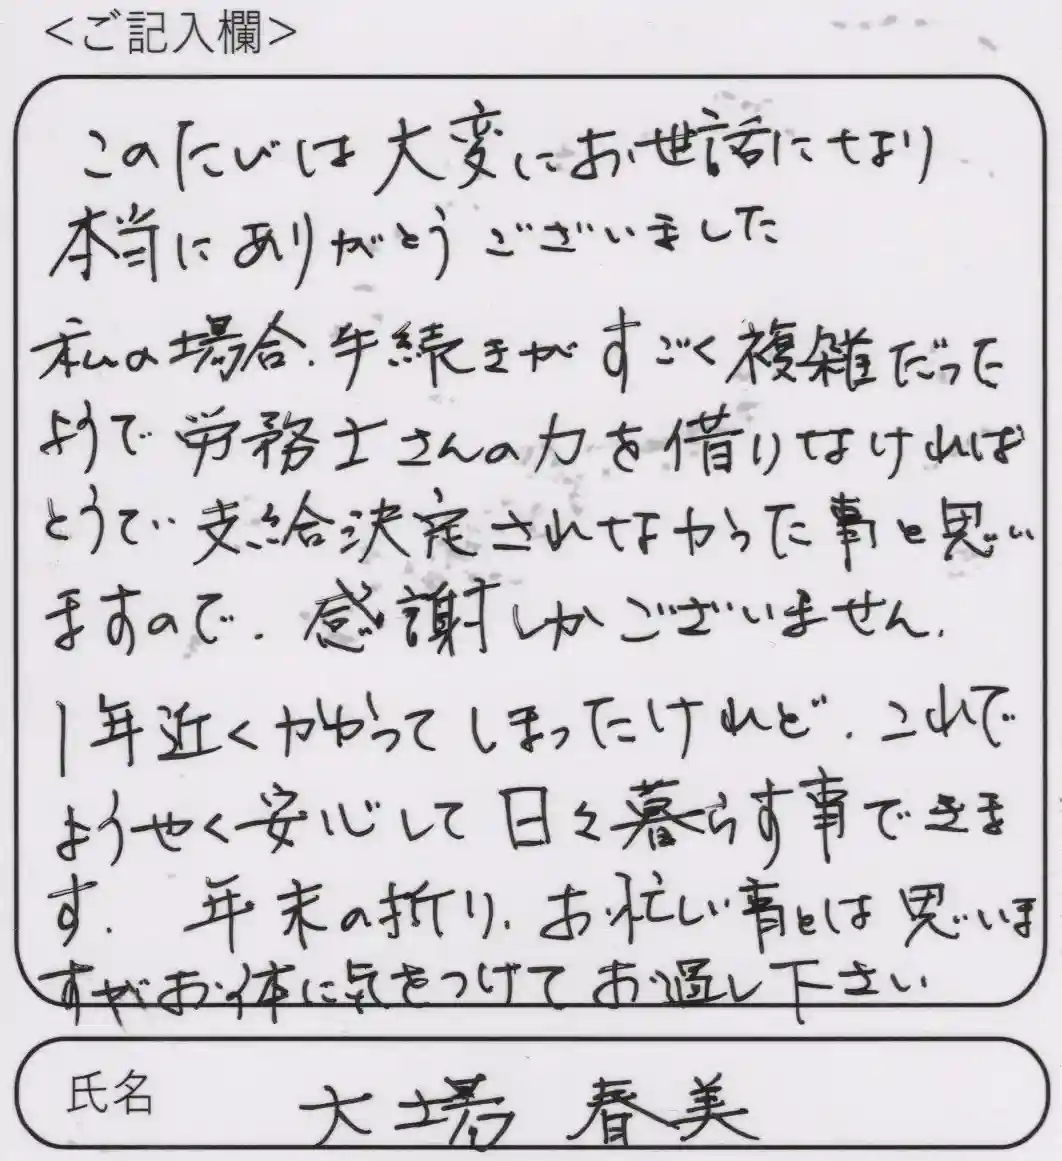 <ご記入欄>
このたびは大変にお世話になり
本当にありがとうございました
私の場合、手続きがすごく複雑だった
ようで労務士さんの力を借りなければ
とうてい支給決定されなかった事と思い
ますので、感謝しかございません。
1年近くかかってしまったけれど、これで
ようやく安心して日々暮らす事できま
す。 年末の折り、お忙しい事とは思いま
すがお体に気をつけてお過し下さい
氏名 大場 春美